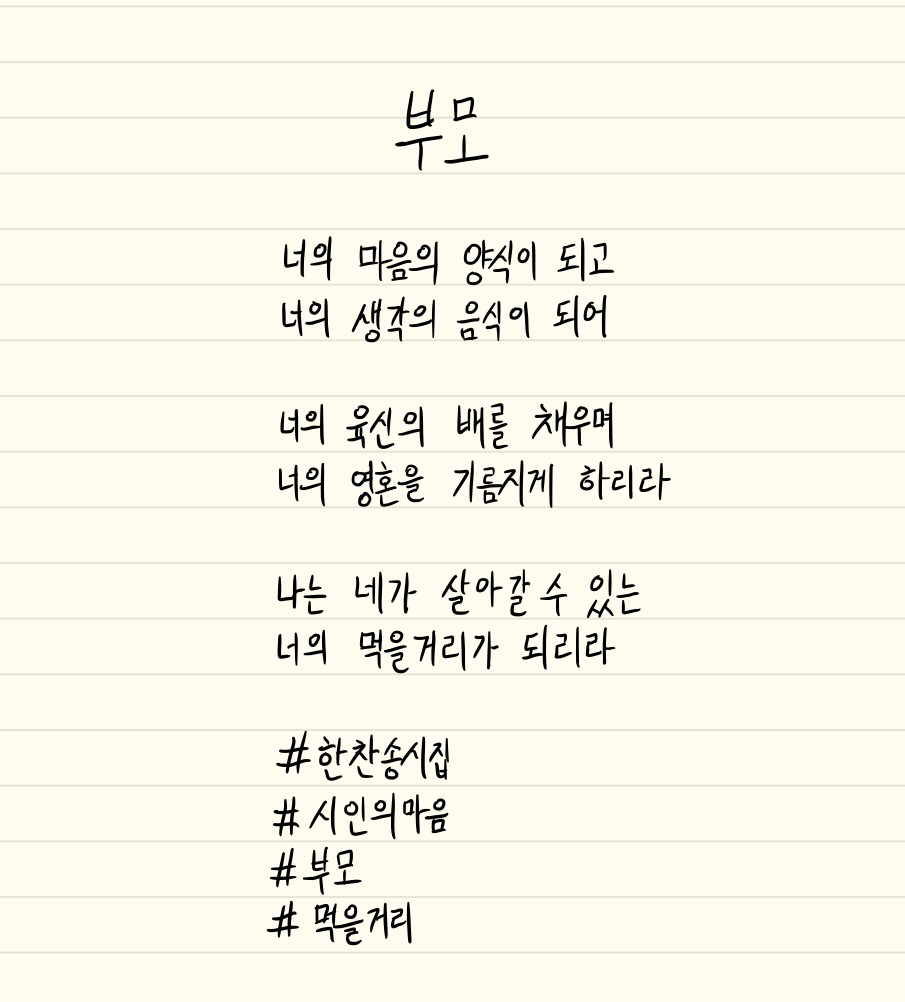 부모
너의 마음의 양식이 되고
너의 생각의 음식이 되어
너의 육신의 배를 채우며
너의 영혼을 기름지게 하리라
나는 네가 살아갈 수 있는
너의 먹을거리가 되리라
#한찬송시집
#시인의마음
#부모
#먹을거리